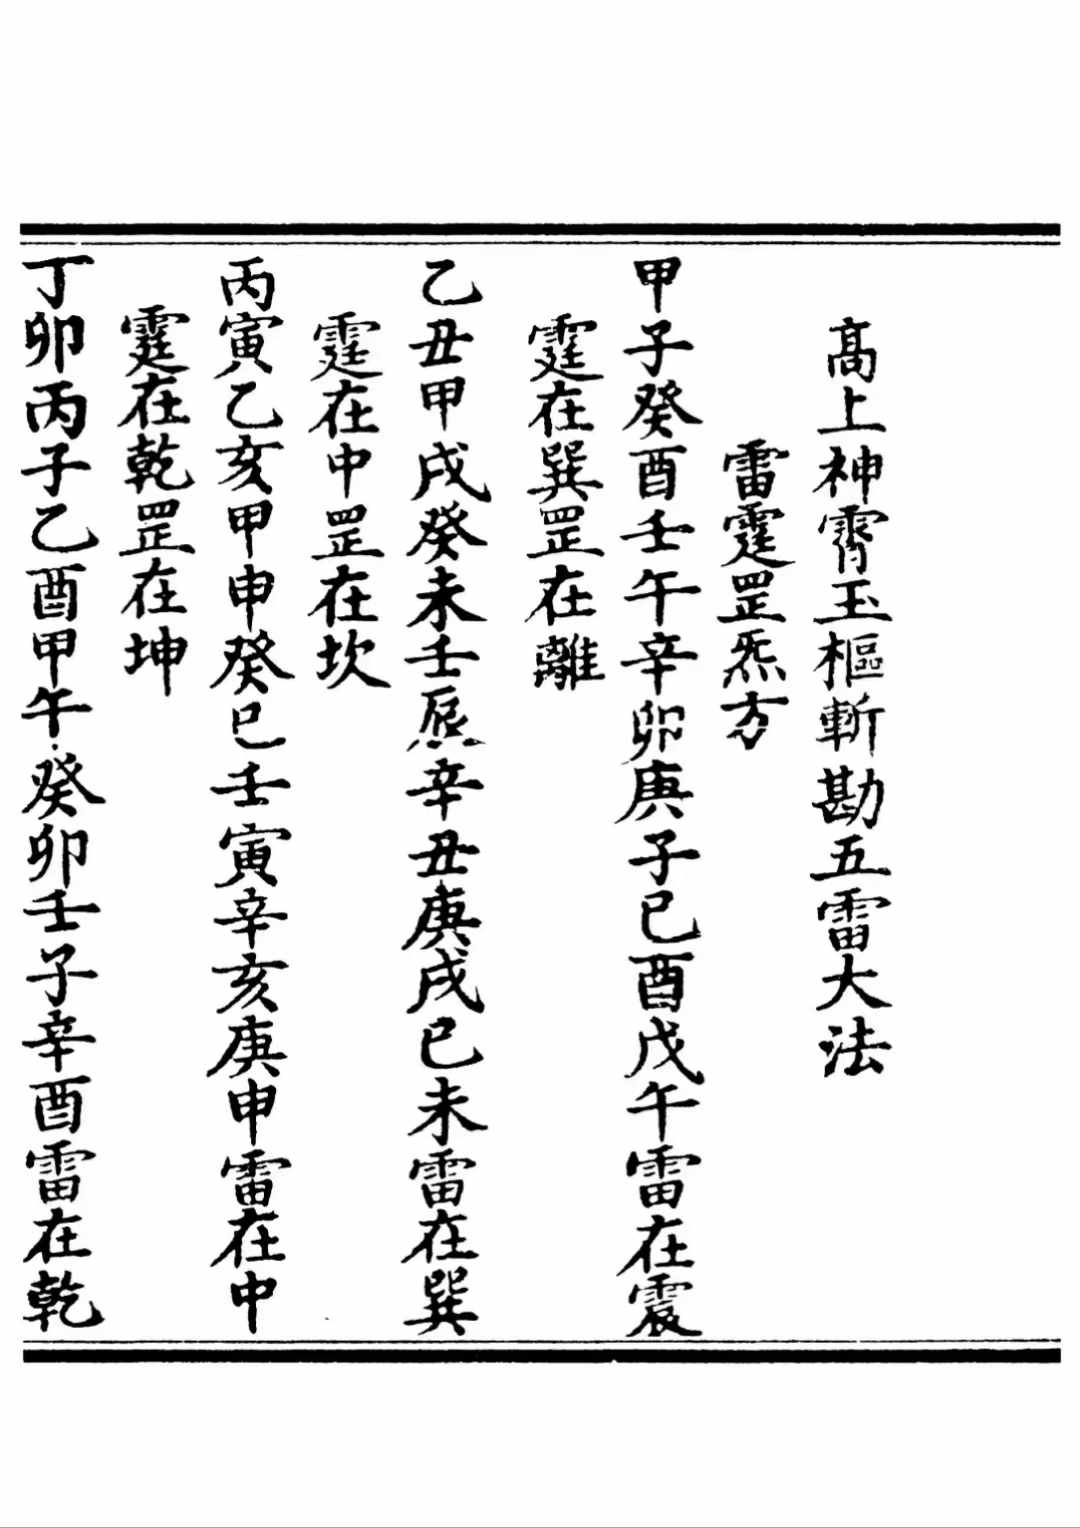 高上神霄玉樞斬勘五雷大法
雷霆罡炁方
甲子癸酉壬午辛卯庚子己酉戊午雷在震
霆在巽罡在離
乙丑甲戌癸未壬辰辛丑庚戌己未雷在巽
霆在中罡在坎
丙寅乙亥甲申癸巳壬寅辛亥庚申雷在中
霆在乾罡在坤
丁卯丙子乙酉甲午癸卯壬子辛酉雷在乾